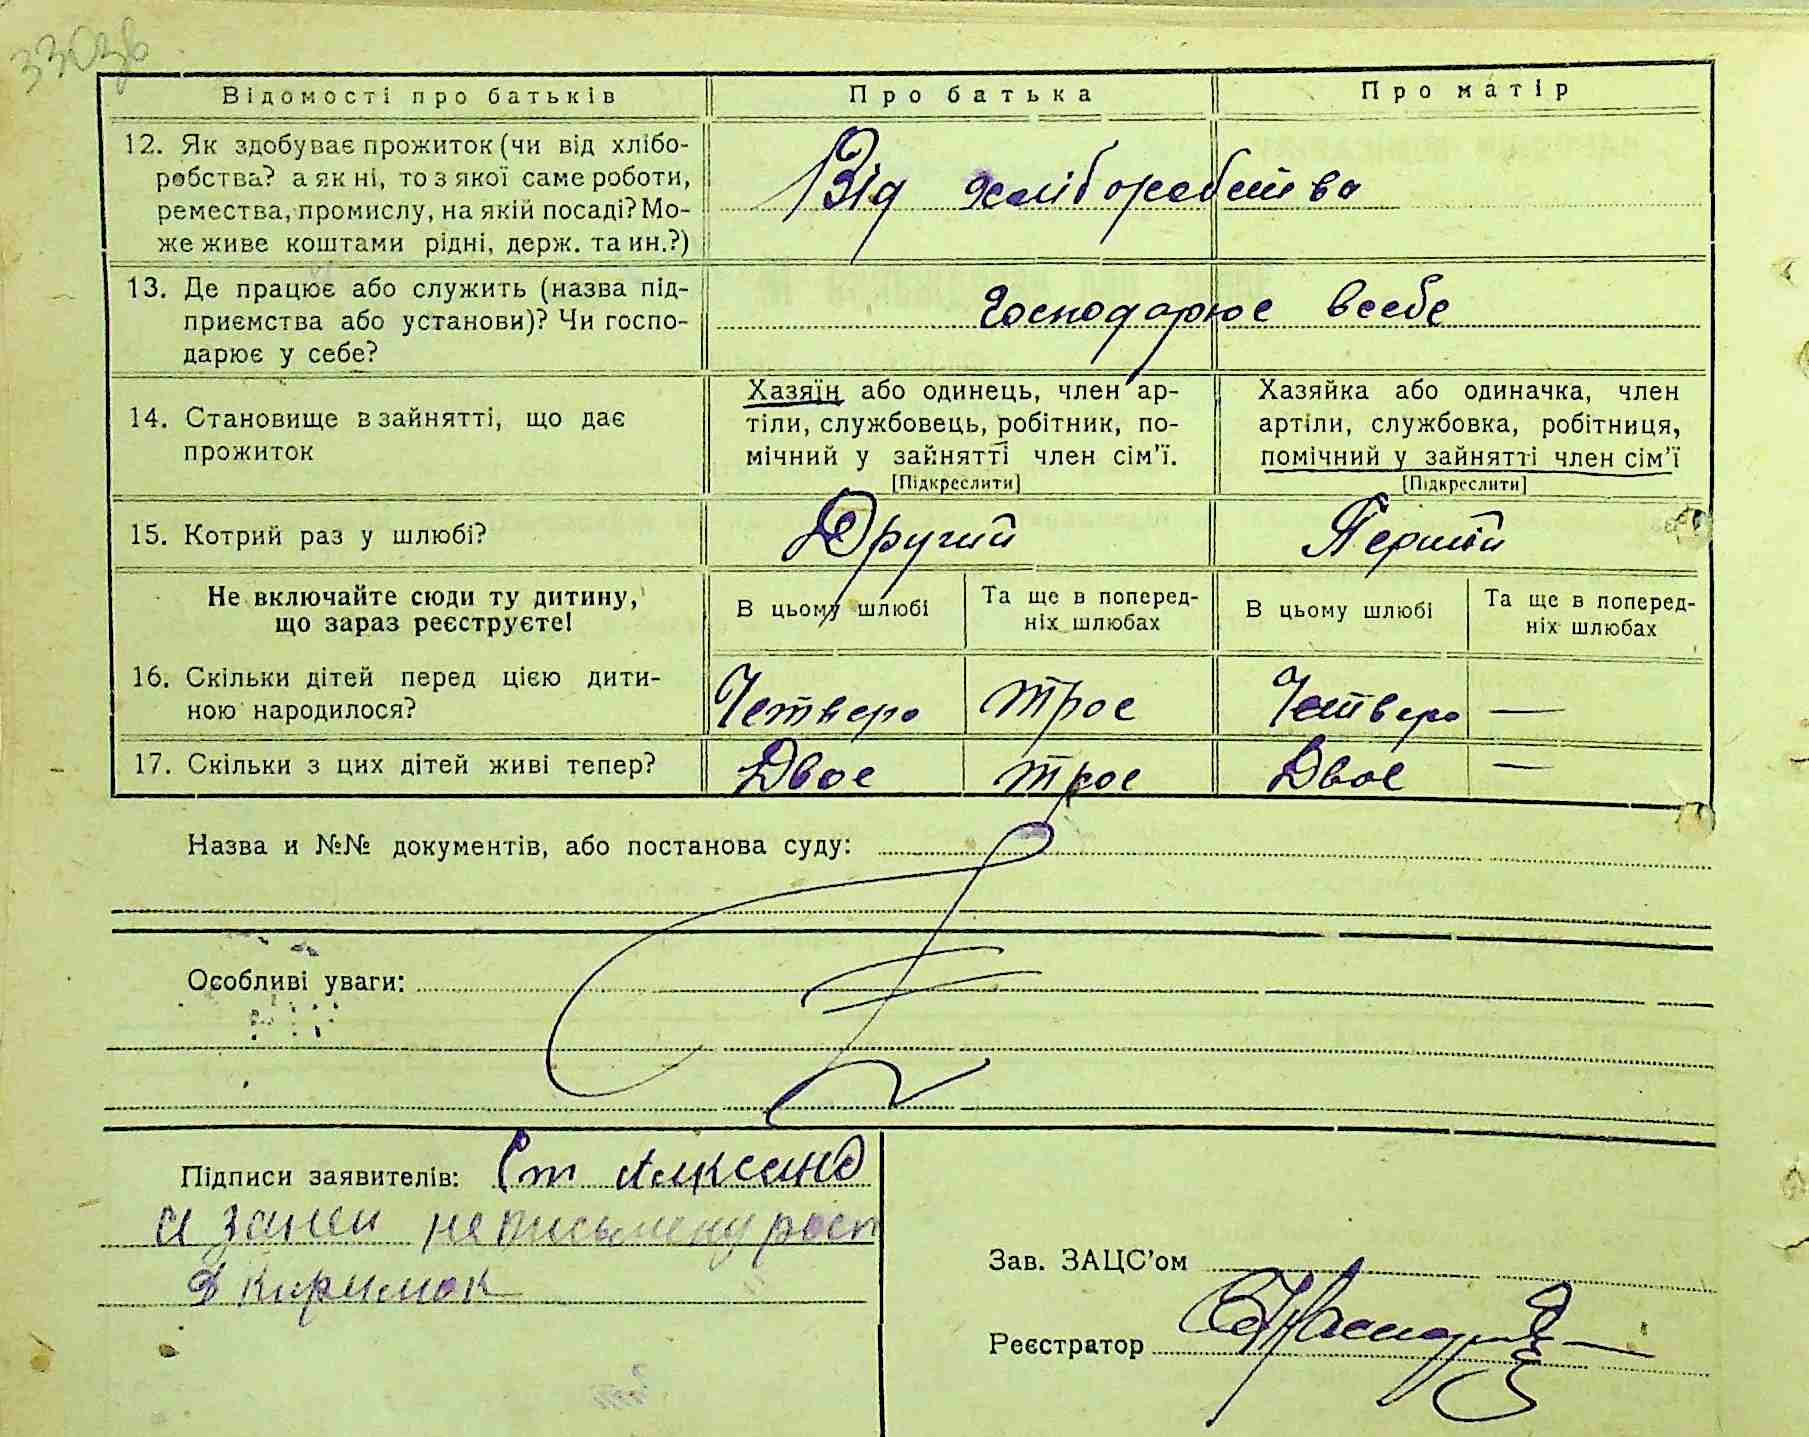 3303б
Відомості про батьків
Про батька
Про матір
12. Як здобуває прожиток (чи від хлібо-
робства? а як ні, то з якої саме роботи,
ремества, промислу, на якій посаді? Мо-
же живе коштами рідні, держ. та ин.?)
Від хліборобства
13. Де працює або служить (назва під-
приємства або установи)? Чи госпо-
дарює у себе?
Господарює всебе
14. Становище в зайнятті, що дає
прожиток
Хазяїн або одинець, член ар-
тіли, службовець, робітник, по-
мічний у зайнятті член сім'ї.
[Підкреслити]
Хазяйка або одиначка, член
артіли, службовка, робітниця,
помічний у зайнятті член сім'ї
[Підкреслити]
15. Котрий раз у шлюбі?
Другий
Перший
Не включайте сюди ту дитину,
що зараз реєструєте!
В цьому шлюбі
Та ще в поперед-
ніх шлюбах
В цьому шлюбі
Та ще в поперед-
ніх шлюбах
16. Скільки дітей перед цією дити-
ною народилося?
Четверо
Трое
Четверо
—
17. Скільки з цих дітей живі тепер?
Двое
трое
Двое
—
Назва и №№ документів, або постанова суду:
Особливі уваги:
Підписи заявителів:
а занеи неписьмену росп
Зав. ЗАЦС'ом
Реєстратор